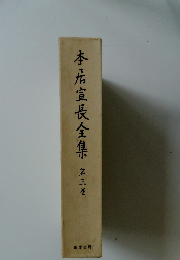 本居宣長全集
第三巻
筑摩書房